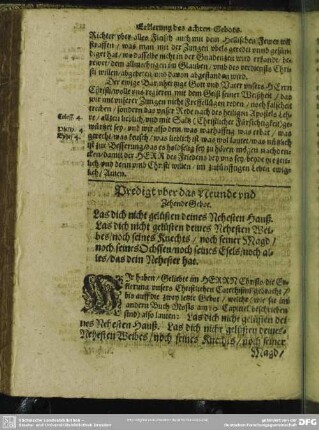 Erklerung des achten Gebots.
Richter vber alles Fleisch auch mit dem Hellischen Fewer wil
straffen / was man mit der Zungen vbels geredet vnnd gesün-
diget hat / wo dasselbe nicht in der Gnadenzeit wird erkandt, be-
rewet / dem allmechtigen im Glauben / vnd des verdiensts Chri-
sti willen / abgebeten, vnd davon abgestanden wird.
Der ewige Barmhertzige Gott vnd Vater vnsers HErrn
Christi / wolle vns regieren, mit dem Geist seiner Weißheit / das
wir mit vnserer Zungen nicht
brechen / sondern das vnser Rede nach des heiligen Apostels Leh-
Coloss. 4.
re / allzeit lieblich, vnd mit Saltz Christlicher Fürsichtigkeit ge-
würtzet sey, vnd wir also dem was warhafftig, was erbar / was
Philip. 4.
gerecht, was keusch / was lieblich ist, was wol lautet, was nützlich
ist zur Besserung / das es holdselig sey zu hören
cken / damit der HERR des Friedens bey vns sey, beyde
lich vnd denn vnd Christi willen / im zukünfftigen Leben ewig-
lich / Amen.
Predigt vber das Neunde vnd
Zehende Gebot.
Las dich nicht gelüsten deines Nehesten Hauß.
Las dich nicht gelüsten deines Nehesten Wei-
bes / noch seines Knechts / noch seiner Magd /
noch seines Ochssen / noch seines Esels / noch al-
les / das dein Nehester hat.
WIr haben / Geliebte im HERRN Christo / die Er-
klerung vnsers Christlichen Catechismi gebracht /
bis auff die zwey letzte Gebot / welche / wie sie im
andern Buch Mosis am 20. Capitel beschrieben
sind / also lauten: Las dich nicht gelüsten dei-
nes Nehesten Hauß. Las dich nicht gelüsten deines
Nehesten Weibes / noch seines Knechts / noch seiner
Magd /